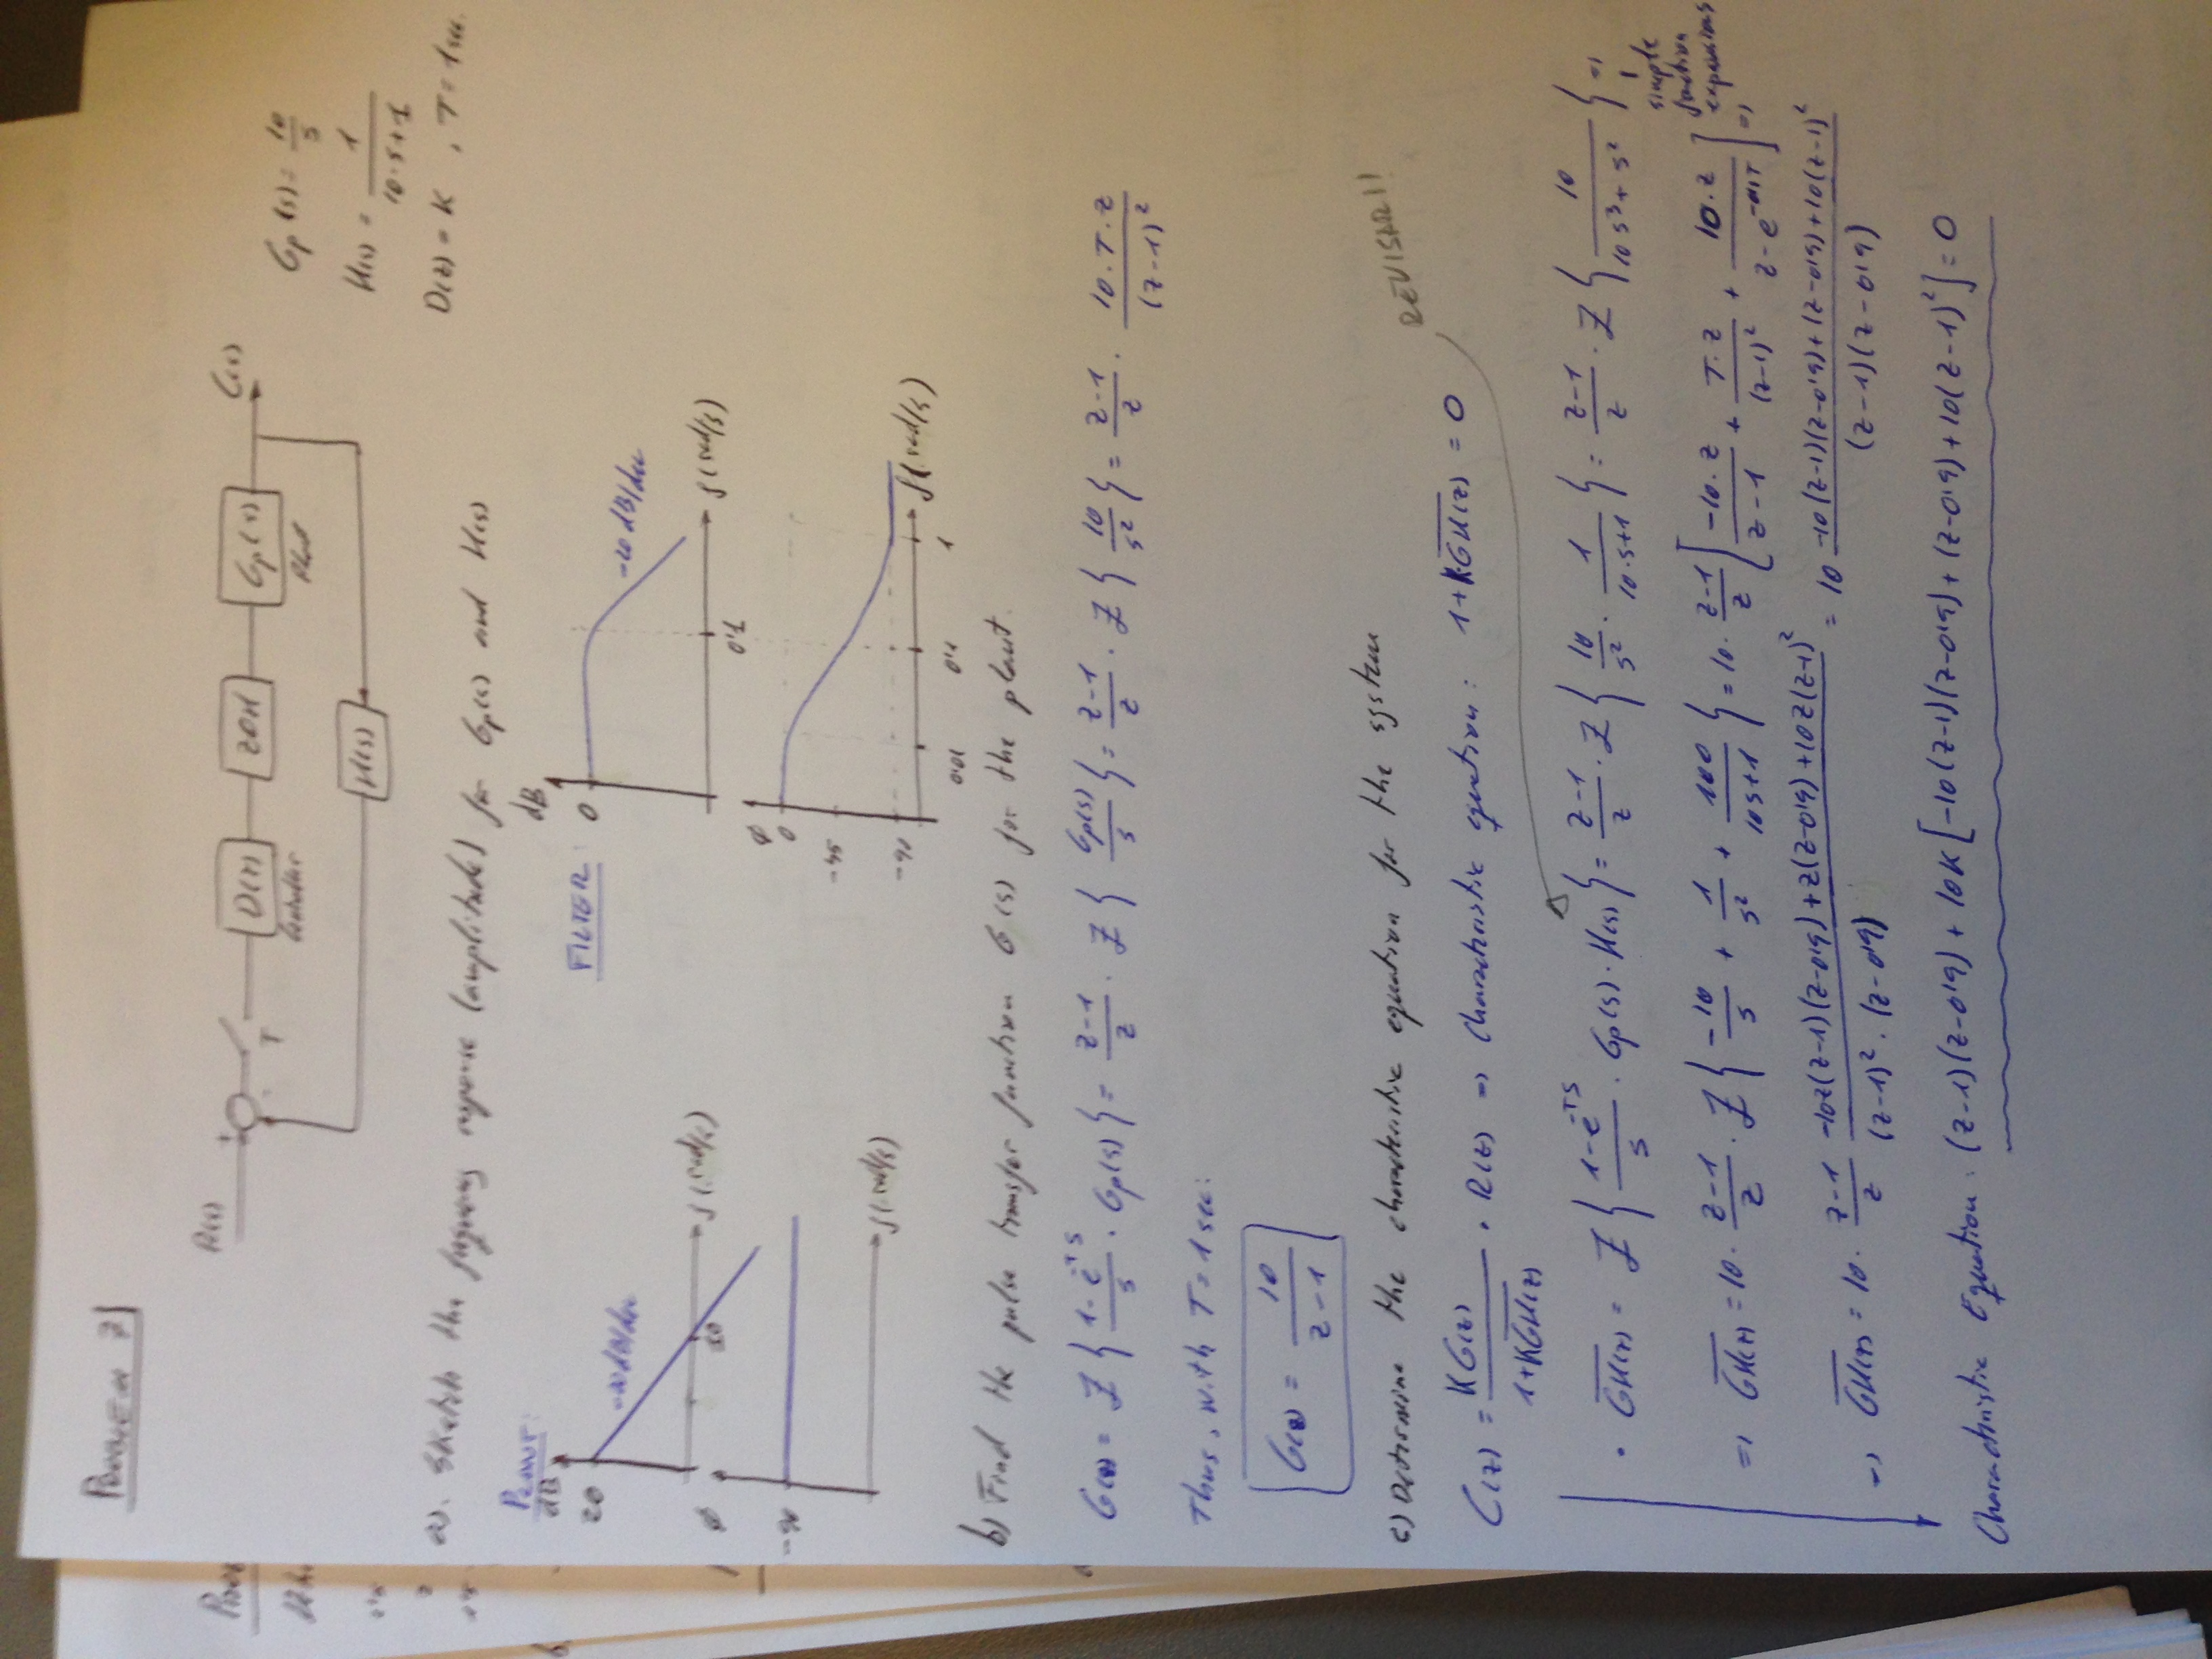 PROBLEM 7
R(s) + - T D(z) ZOH Gp(s) C(s)
Controller Plant
H(s)
Gp(s) = 10/s
H(s) = 1/(10·s+1)
D(z) = K , T = 1 sec.
a). Sketch the frequency response (amplitude) for Gp(s) and H(s)
PLANT:
dB
20
-20dB/dec
10
f(rad/s)
φ
-90
f(rad/s)
FILTER:
dB
0
-20 dB/dec
0'1
f(rad/s)
φ
0
-45
-90
0'01 0'1 1
f(rad/s)
b) Find the pulse transfer function G(s) for the plant.
G(z) = Z{(1-e^-TS)/s · Gp(s)} = (z-1)/z · Z{Gp(s)/s} = (z-1)/z · Z{10/s²} = (z-1)/z · (10·T·z)/(z-1)²
Thus, with T = 1 sec:
G(z) = 10/(z-1)
c) Determine the characteristic equation for the system
REVISAR!!
C(z) = KG(z)/(1+KGH(z)) · R(z) => Characteristic equation: 1+KGH(z) = 0
· GH(z) = Z{(1-e^-TS)/s · Gp(s)·H(s)} = (z-1)/z · Z{10/s² · 1/(10·s+1)} = (z-1)/z · Z{10/(10s³+s²)} =>
simple
fraction
expansions
=> GH(z) = 10· (z-1)/z · Z{-10/s + 1/s² + 100/(10s+1)} = 10· (z-1)/z [(-10·z)/(z-1) + (T·z)/(z-1)² + (10·z)/(z-e^-0'1T)] =>
=> GH(z) = 10· (z-1)/z (-10z(z-1)(z-0'9)+z(z-0'9)+10z(z-1)²)/((z-1)²·(z-0'9)) = 10 (-10(z-1)(z-0'9)+(z-0'9)+10(z-1)²)/((z-1)(z-0'9))
Characteristic Equation: (z-1)(z-0'9) + 10K[-10(z-1)(z-0'9)+(z-0'9)+10(z-1)²] = 0